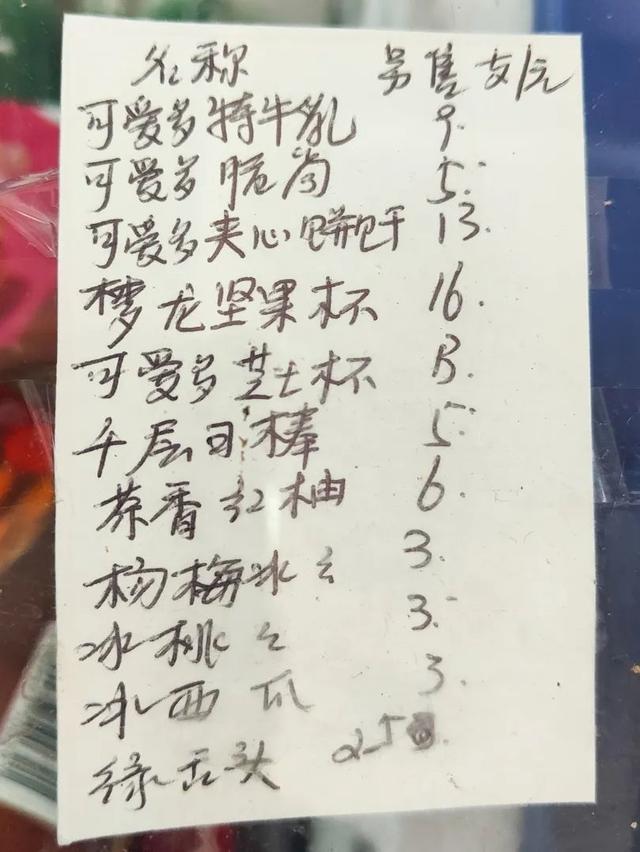 名称 另售支/元
可爱多特牛乳 9.
可爱多脆筒 5.
可爱多夹心饼干 13.
梦龙坚果杯 16.
可爱多芝士杯 13.
千层 棒 5.
茶香红柚 6.
杨梅冰 3.
冰桃 3.
冰西瓜 3.
绿舌头 2.5